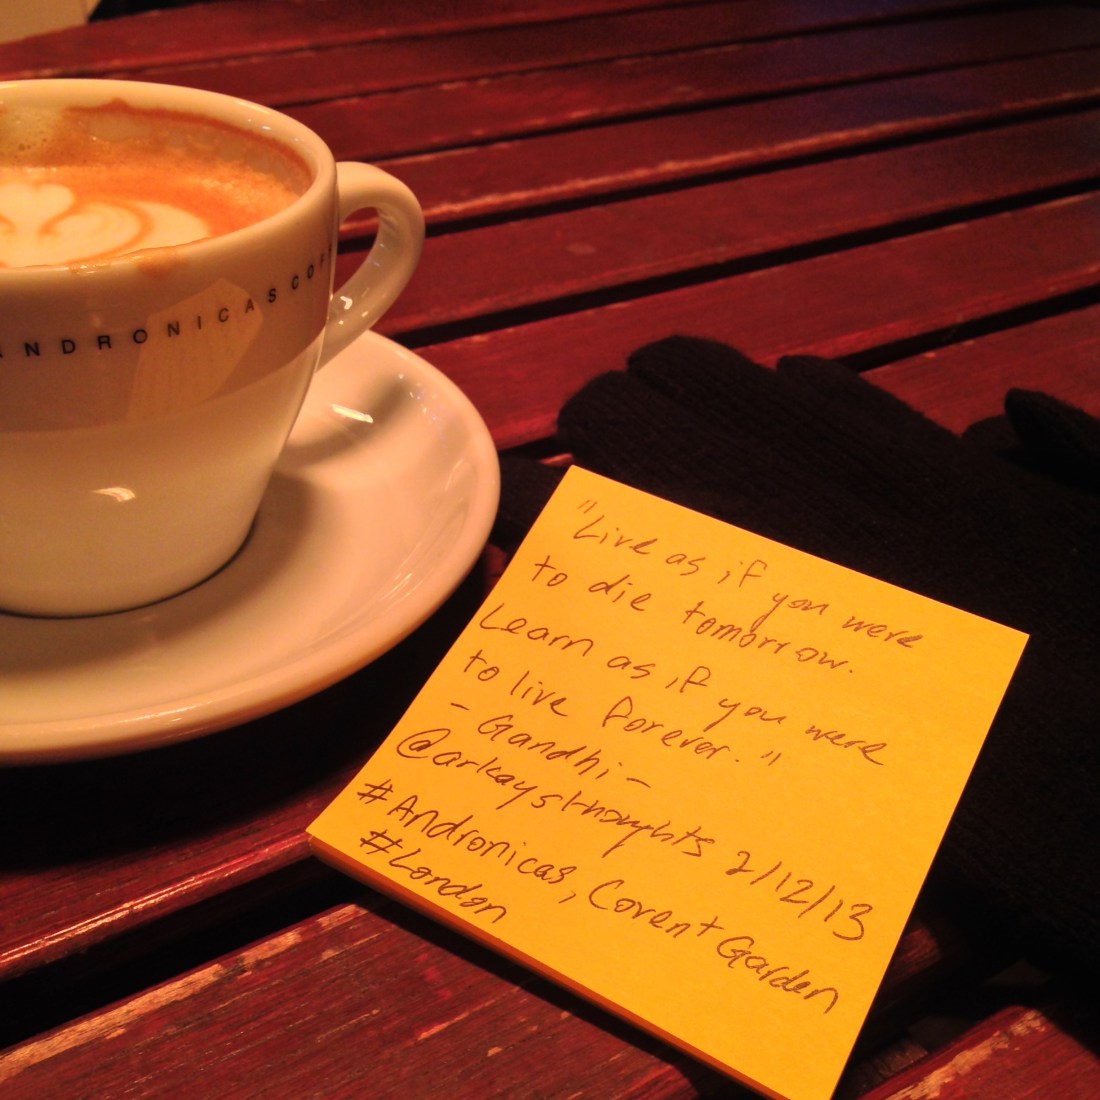 ANDRONICAS COF
"Live as if you were
to die tomorrow.
Learn as if you were
to live forever."
- Gandhi -
@arkaysthoughts 2/12/13
#Andronicas, Covent Garden
#London